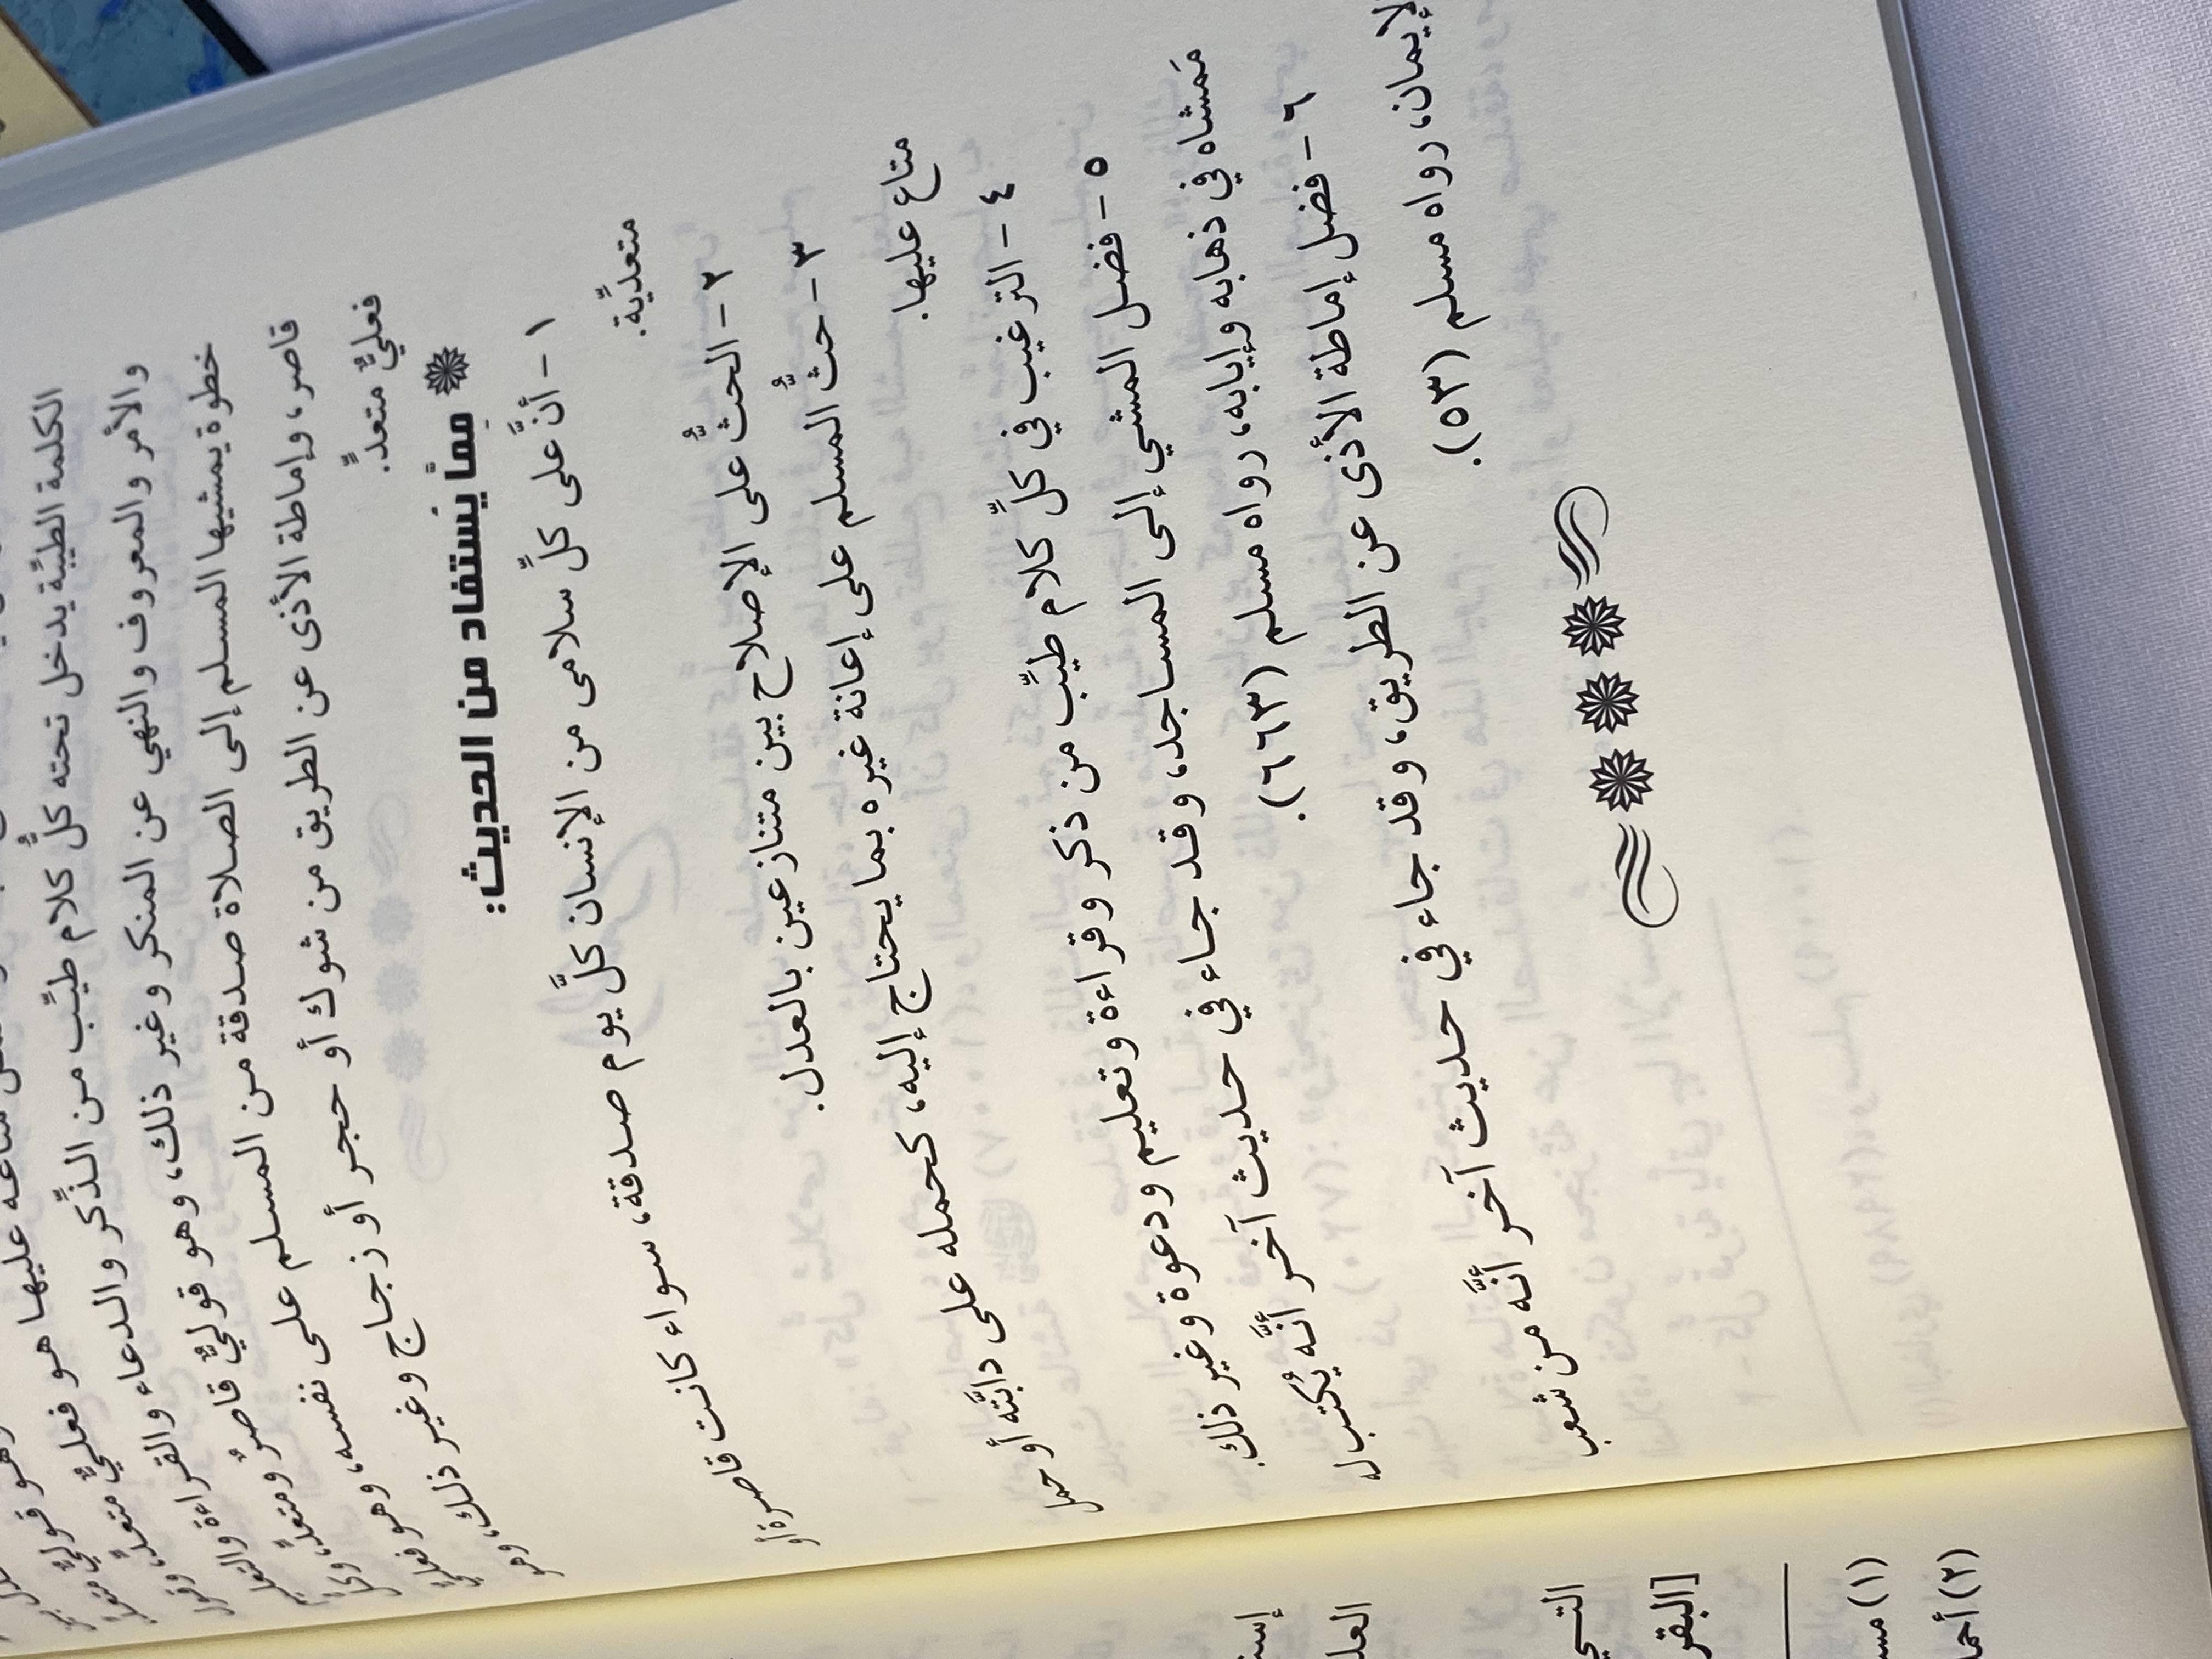 عليها هو فعليٌّ متعدٍّ، وقول
الكلمة الطيِّبة يدخل تحته كلُّ كلام طيِّب من الذِّكر والدعاء والقراءة والتعليم
والأمر والمعروف والنهي عن المنكر وغير ذلك، وهو قوليٌّ قاصرٌ ومتعدٍّ، وكلُّ
خطوة يمشيها المسلم إلى الصلاة صدقة من المسلم على نفسه، وهو فعليٌّ
قاصر، وإماطة الأذى عن الطريق من شوك أو حجر أو زجاج وغير ذلك، وهو
فعليٌّ متعدٍّ.
مِمَّا يُستفاد من الحديث:
١ - أنَّ على كلِّ سلامى من الإنسان كلَّ يوم صدقة، سواء كانت قاصرة أو
متعديِّة.
٢ - الحثُّ على الإصلاح بين متنازعين بالعدل.
٣ - حثُّ المسلم على إعانة غيره بما يحتاج إليه، كحمله على دابَّته أو حمل
متاع عليها.
٤ - الترغيب في كلِّ كلام طيِّب من ذكر وقراءة وتعليم ودعوة وغير ذلك.
٥ - فضل المشي إلى المساجد، وقد جاء في حديث آخر أنَّه يُكتب له
مَمشاه في ذهابه وإيابه، رواه مسلم (٦٦٣).
٦ - فضل إماطة الأذى عن الطريق، وقد جاء في حديث آخر أنَّه من شعب
الإيمان، رواه مسلم (٥٣).
العل
[البقر
(١)
(٢)